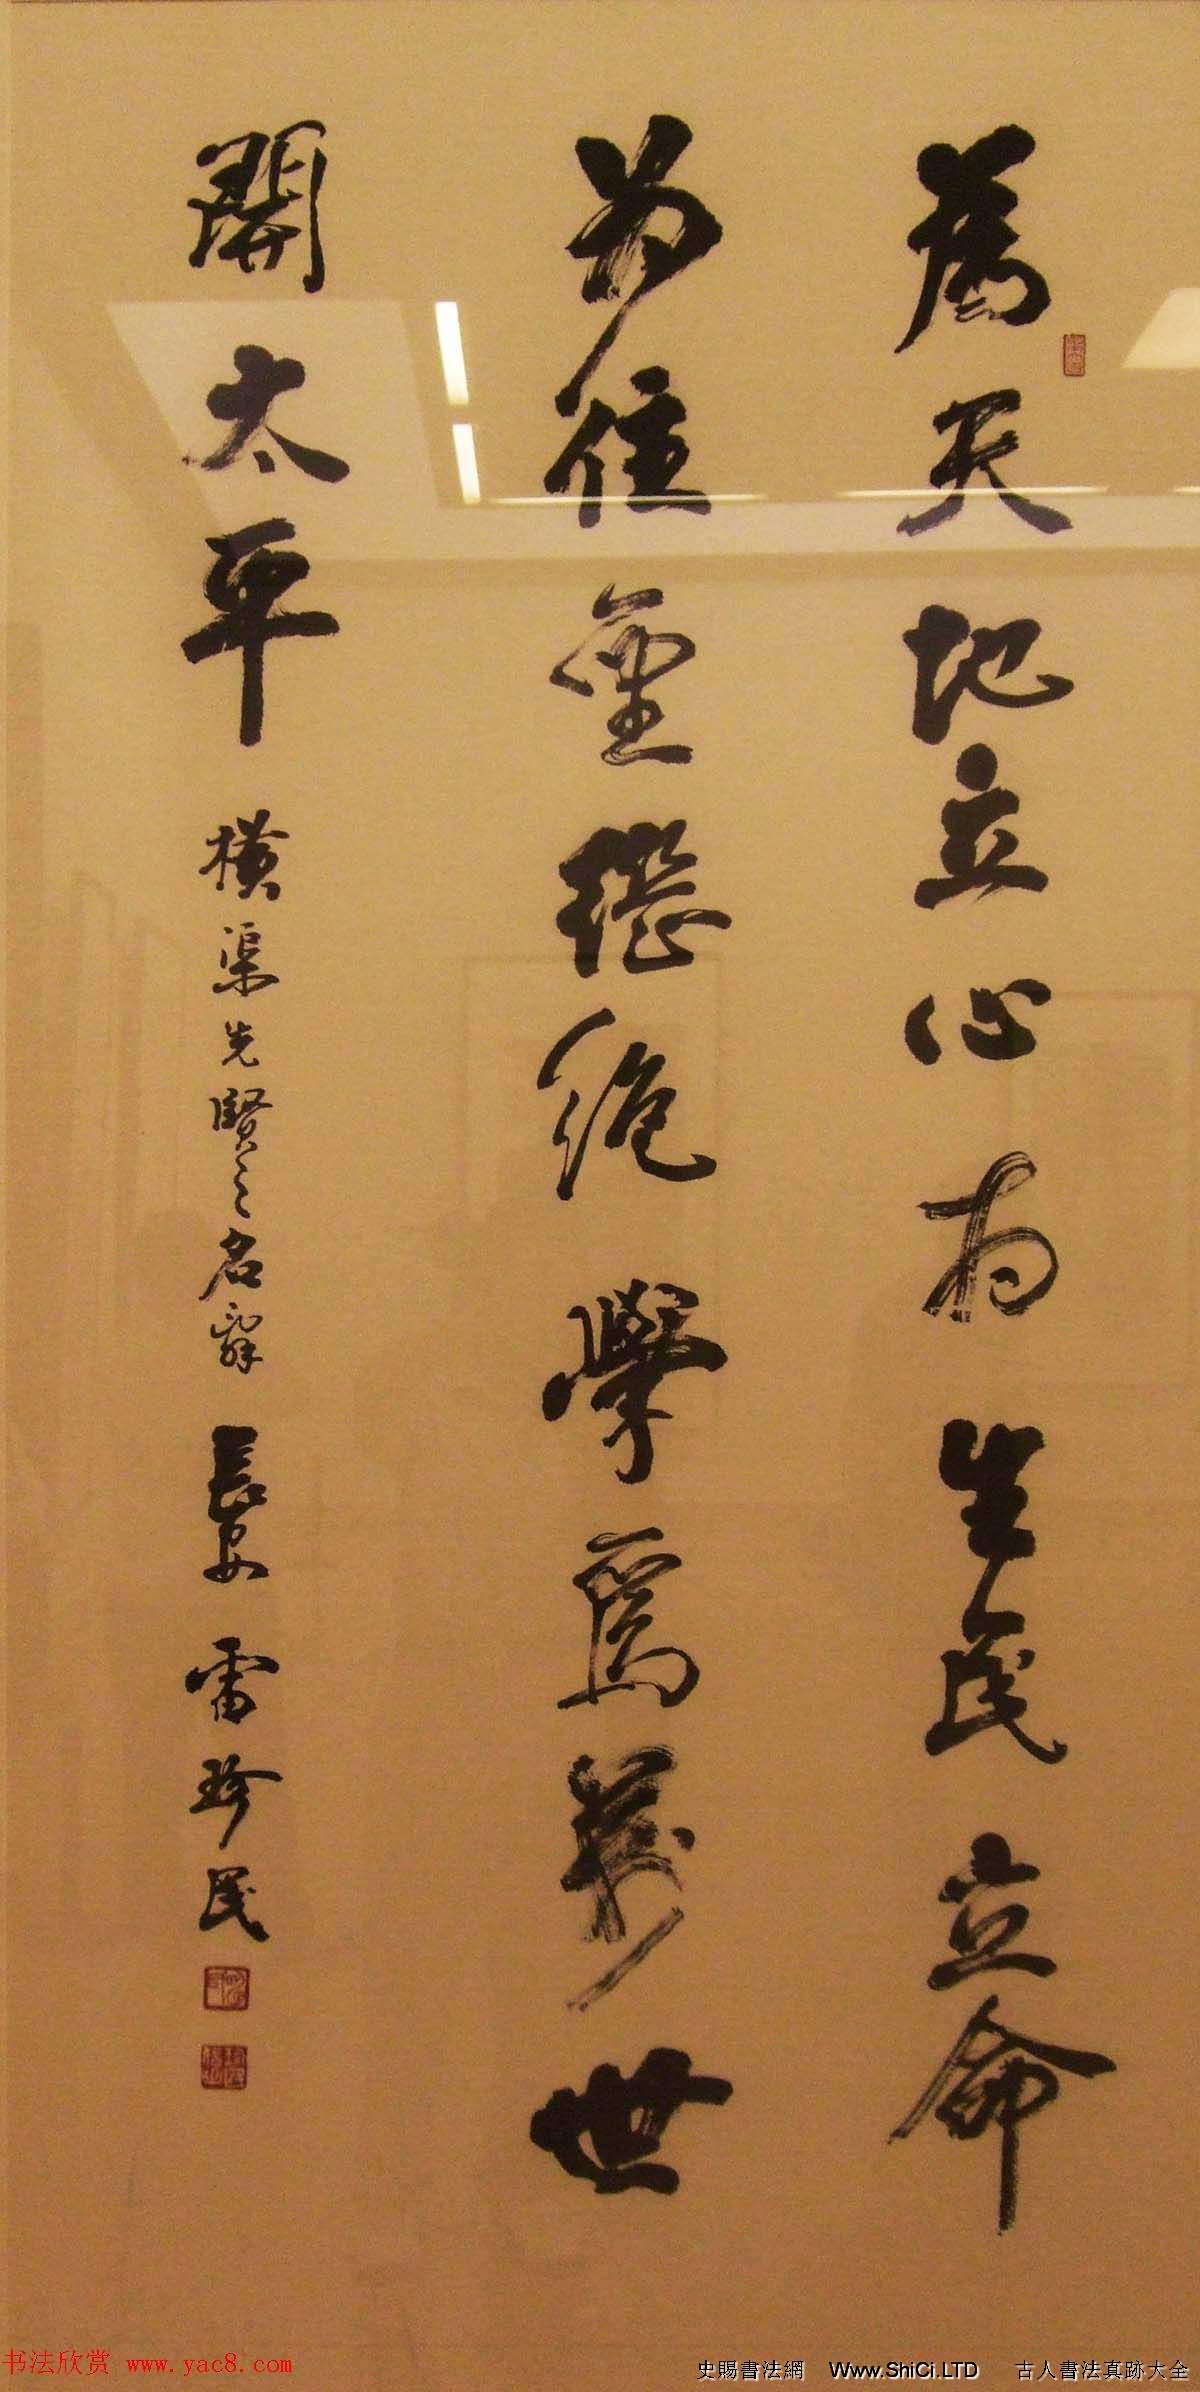 為天地立心為生民立命
為往聖繼絕學為萬世
開太平
橫渠先賢之名辭 長安 雷珍民
书法欣赏 www.yac8.com
史賜書法網 Www.ShiCi.LTD 古人書法真跡大全